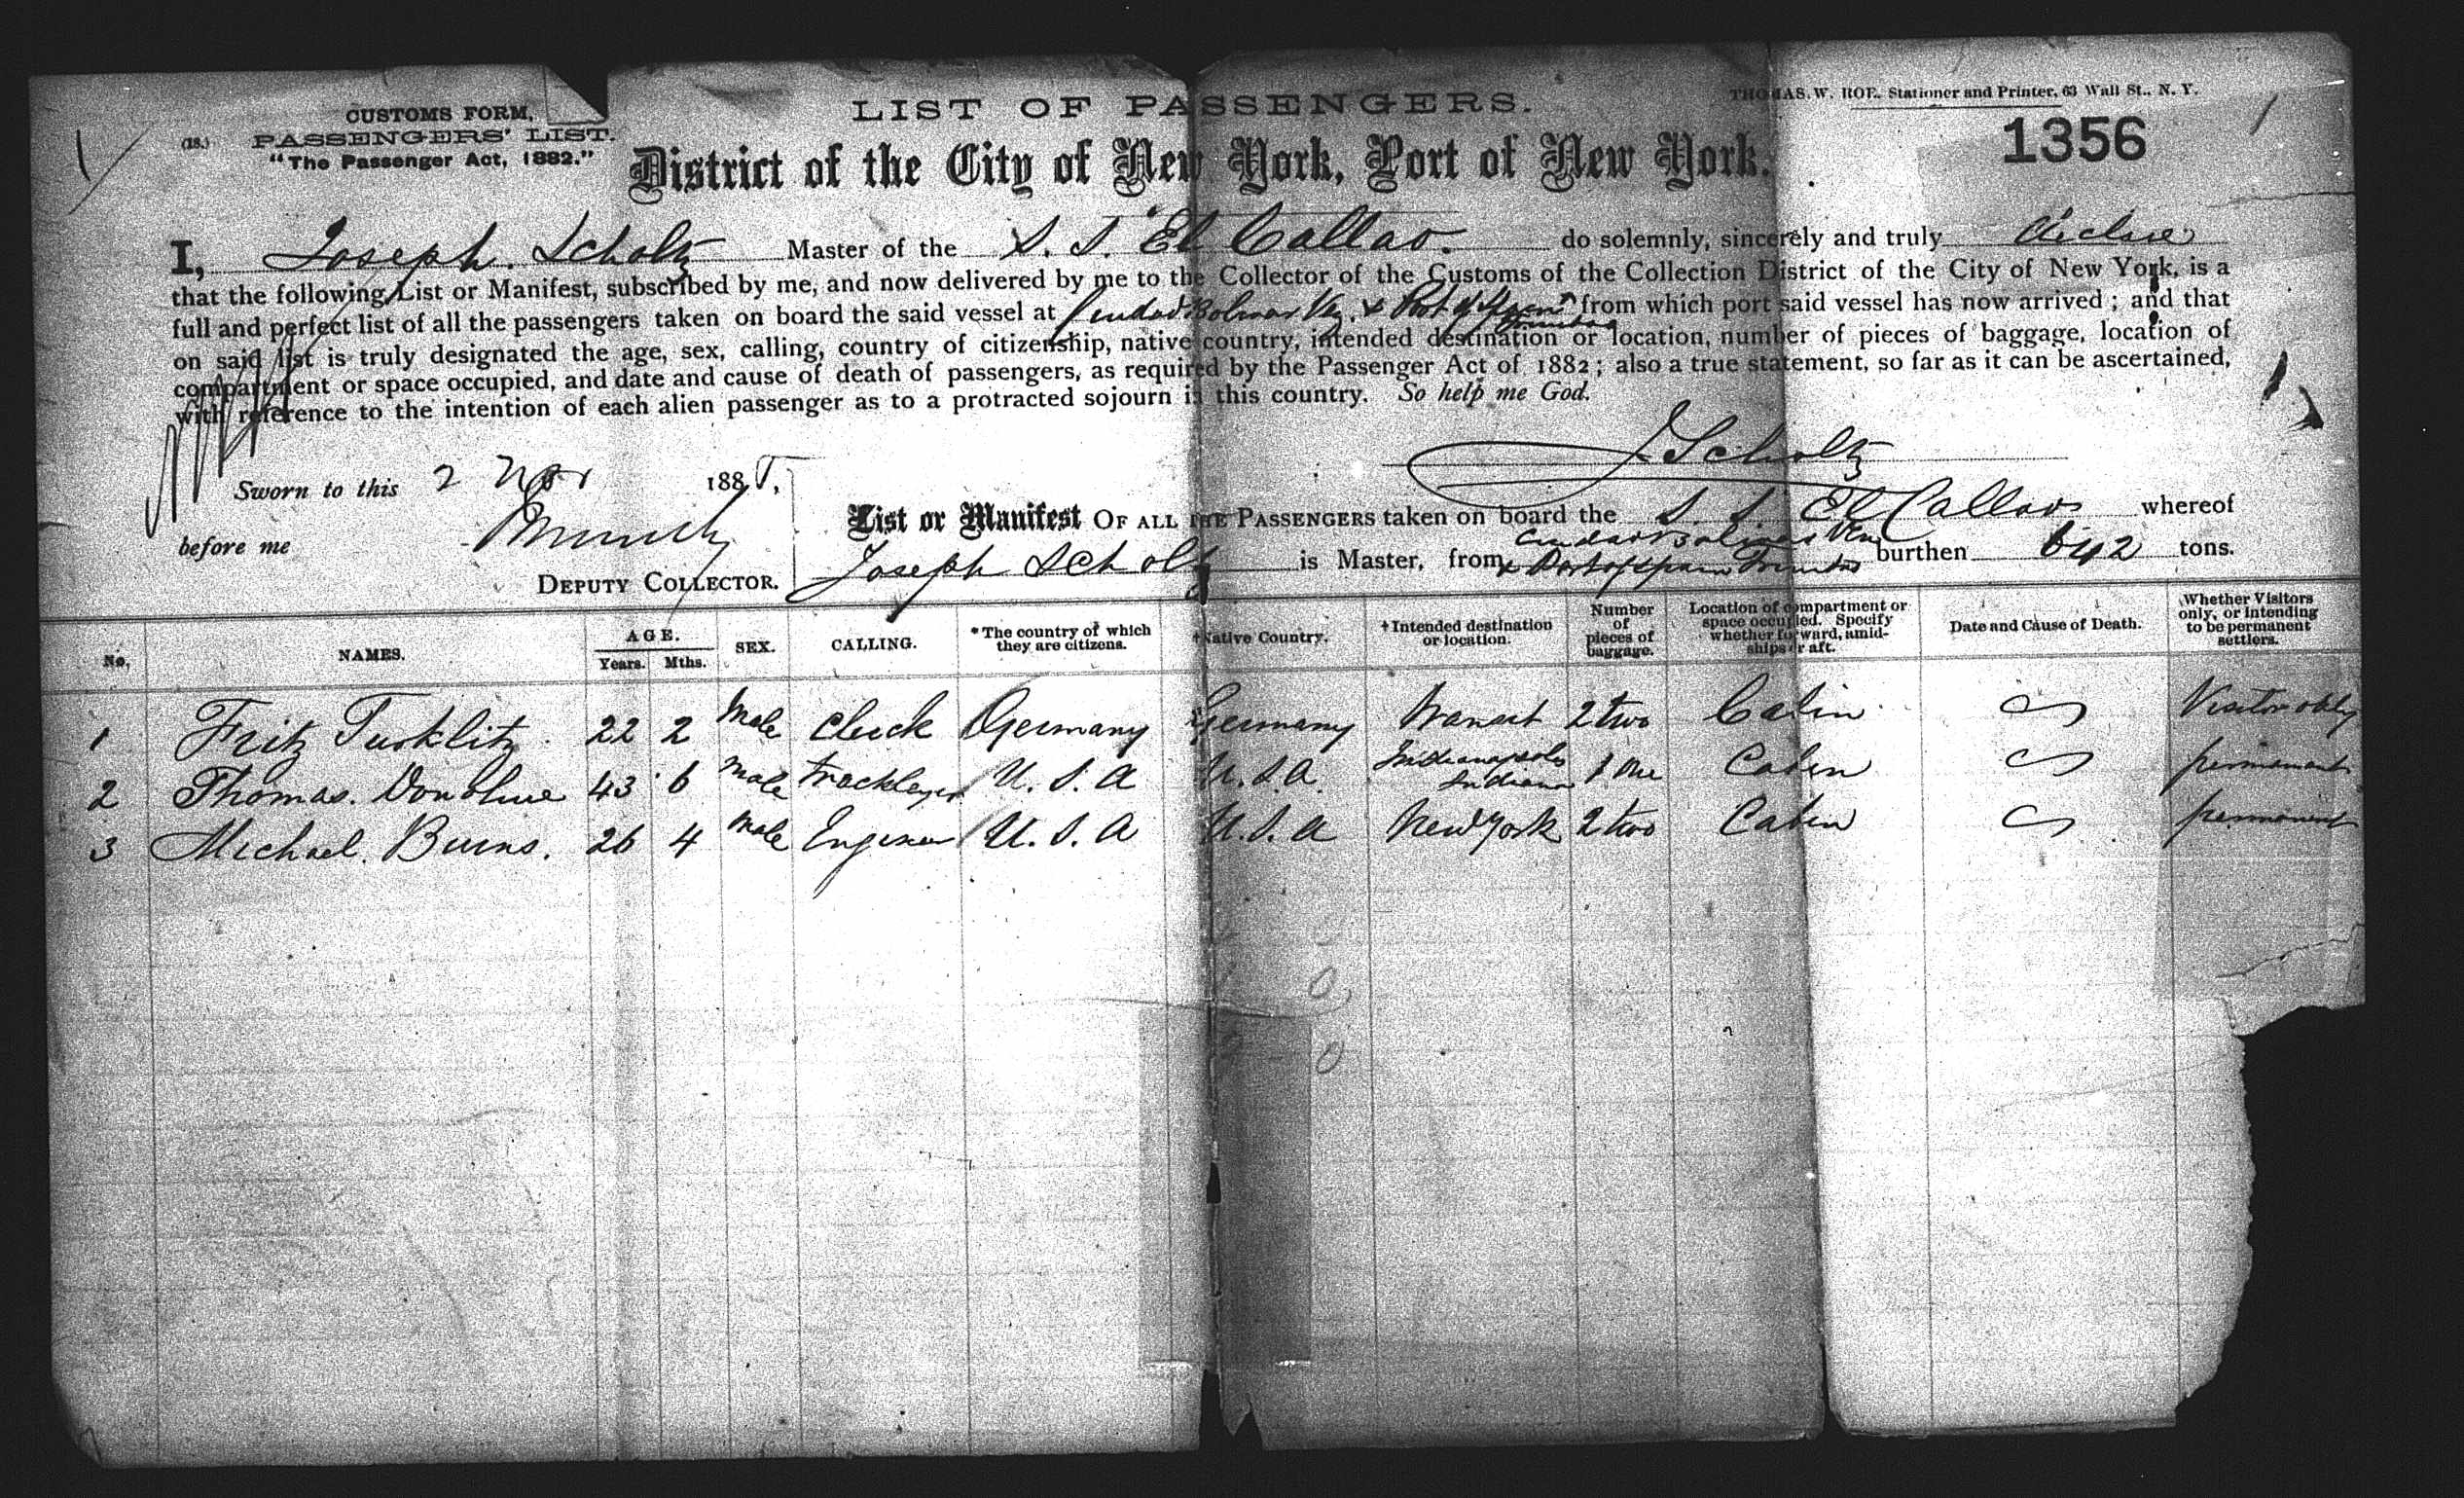 CUSTOMS FORM,
(18.) PASSENGERS' LIST.
"The Passenger Act, 1882."
LIST OF PASSENGERS.
THOMAS. W. ROE. Stationer and Printer, 63 Wall St., N. Y.
1356
District of the City of New York, Port of New York.
I, Joseph. Scholtz Master of the S. S. "El Callao. do solemnly, sincerely and truly declare
that the following List or Manifest, subscribed by me, and now delivered by me to the Collector of the Customs of the Collection District of the City of New York, is a
full and perfect list of all the passengers taken on board the said vessel at Ciudad Bolivar Ven. & Port of Spain Trinidad from which port said vessel has now arrived ; and that
on said list is truly designated the age, sex, calling, country of citizenship, native country, intended destination or location, number of pieces of baggage, location of
compartment or space occupied, and date and cause of death of passengers, as required by the Passenger Act of 1882 ; also a true statement, so far as it can be ascertained,
with reference to the intention of each alien passenger as to a protracted sojourn in this country. So help me God.
J Scholtz
Sworn to this 2 Nov 188
before me
DEPUTY COLLECTOR.
List or Manifest OF ALL THE PASSENGERS taken on board the S. S. El Callao whereof
Joseph Scholtz is Master, from Ciudad Bolivar Ven & Port of Spain Trinidad burthen 692 tons.
No. NAMES. AGE. Years. Mths. SEX. CALLING. *The country of which they are citizens. †Native Country. †Intended destination or location. Number of pieces of baggage. Location of compartment or space occupied. Specify whether forward, amidships or aft. Date and Cause of Death. Whether Visitors only, or intending to be permanent settlers.
1 Fritz Turklitz 22 2 Male Clerk Germany Germany Transit 2 two Cabin Visitor only
2 Thomas. Donohue 43 6 Male tracklayer U. S. A U. S. A. Indianapolis Indiana 1 One Cabin permanent
3 Michael. Burns. 26 4 Male Engineer U. S. A U. S. A New York 2 two Cabin permanent